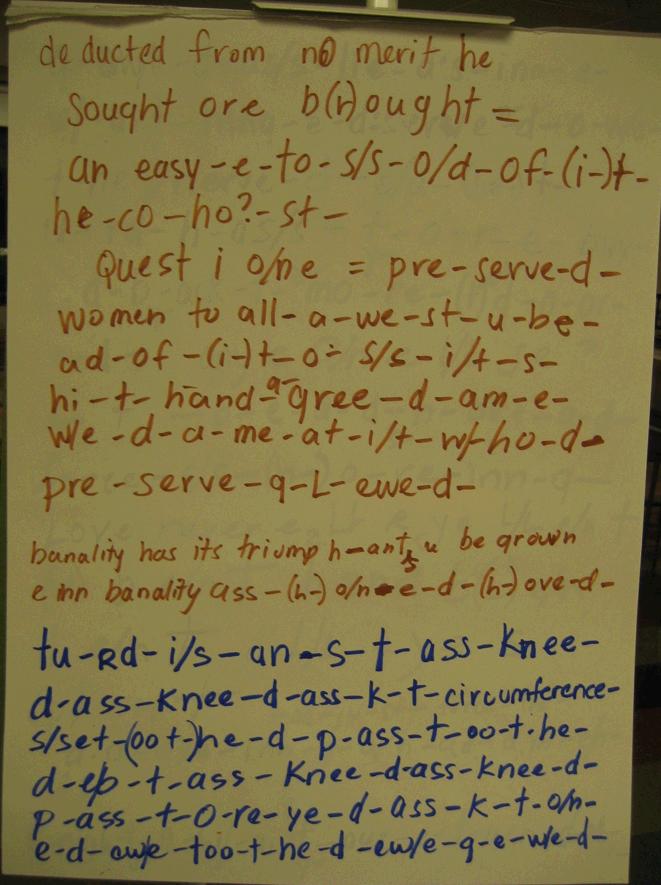 deducted from no merit he
sought ore b(r)ought =
an easy-e-to-s/s-o/d-of-(i-)t-
he-co-ho?-st-
Quest i o/ne = pre-serve-d-
women to all-a-we-st-u-be-
ad-of-(i-)t-o- s/s-i/t-s-
hi-t-hand-a-gree-d-am-e-
w/e-d-a-me-at-i/t-w/-ho-d-
pre-serve-q-L-ewe-d-
banality has its triump h-ant, s u be grown
e inn banality ass-(h-) o/n-e-d-(h-) ove-d-
tu-Rd-i/s-an-s-t-ass-knee-
d-ass-knee-d-ass-k-t-circumference-
s/set-(oot-)he-d-p-ass-t-oo-t-he-
d-ep-t-ass-knee-d-ass-knee-d-
p-ass-t-o-re-ye-d-ass-k-t-o/n-
e-d-aw/e-too-t-he-d-ew/e-q-e-w/e-d-